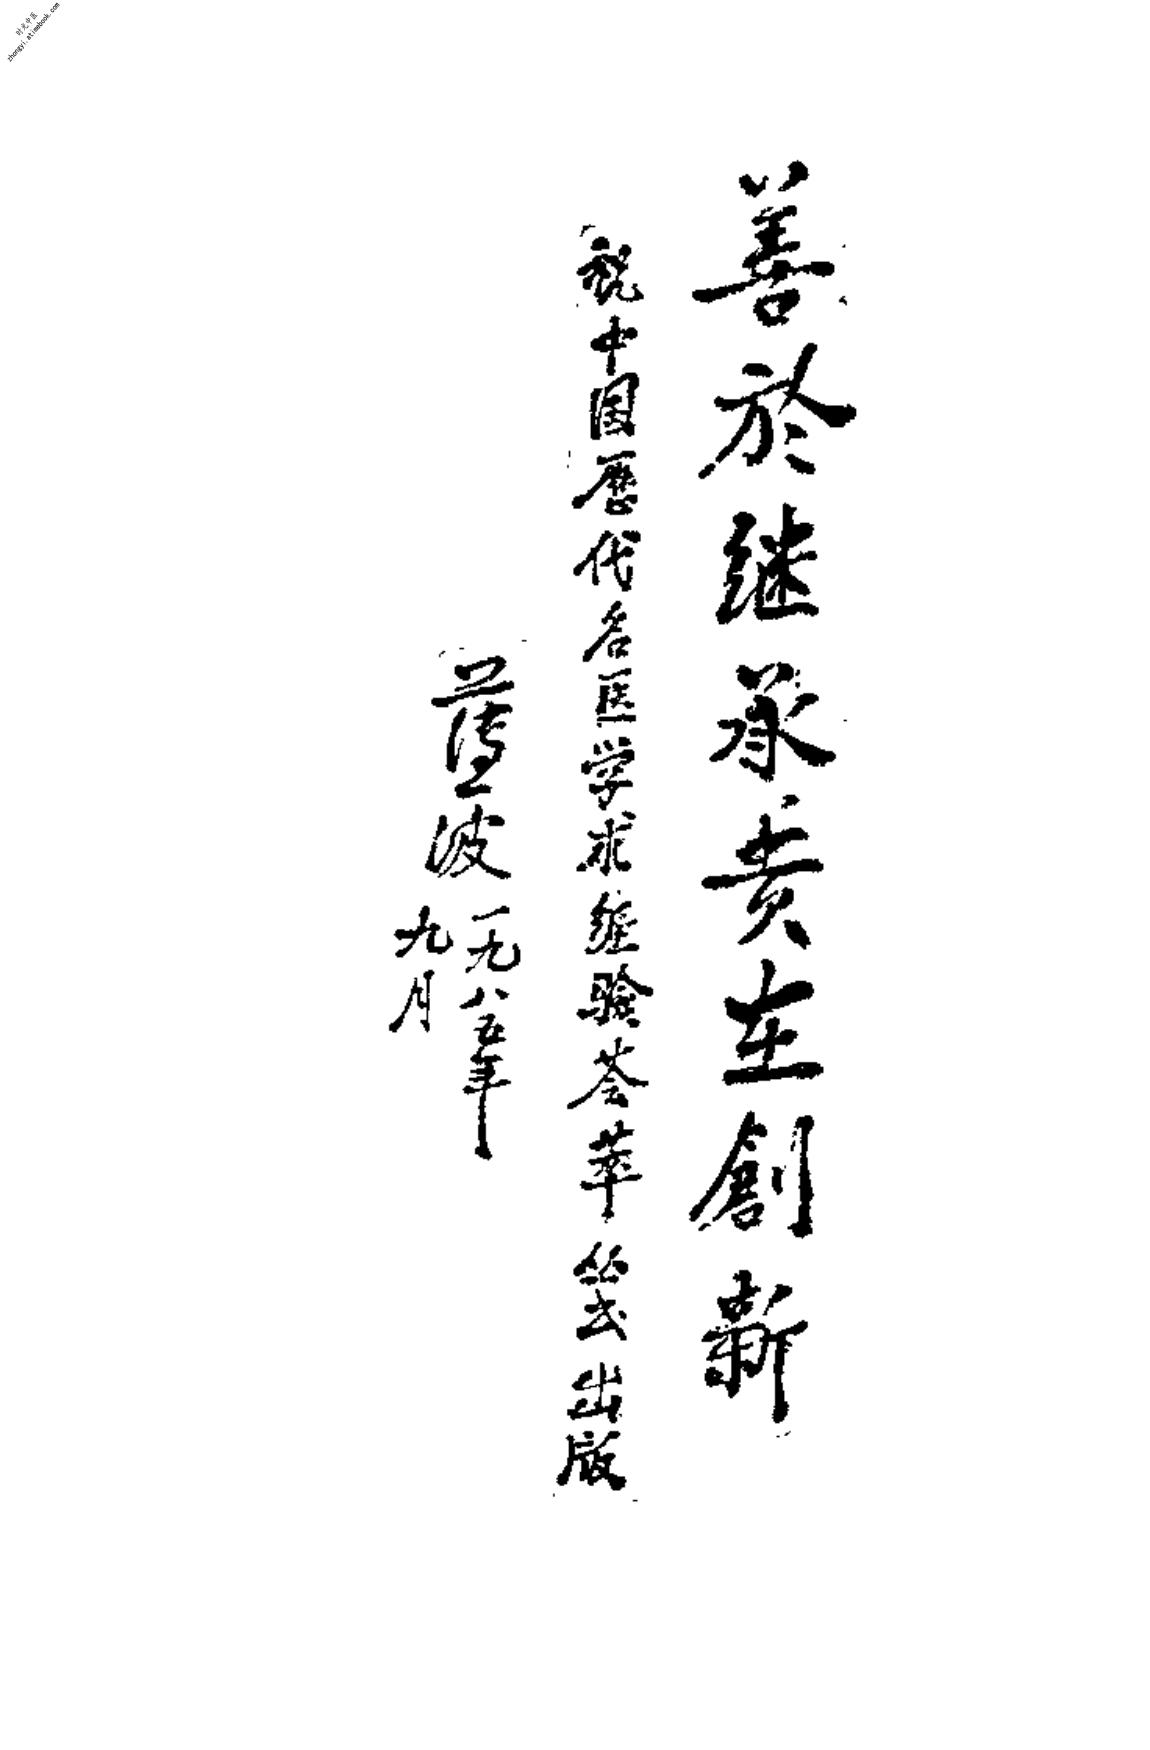 善於继承贵在創新
祝中国歷代名医学术经验荟萃丛书出版
薄一波
一九八五年
九月
时光中医
zhongyi.atimebook.com